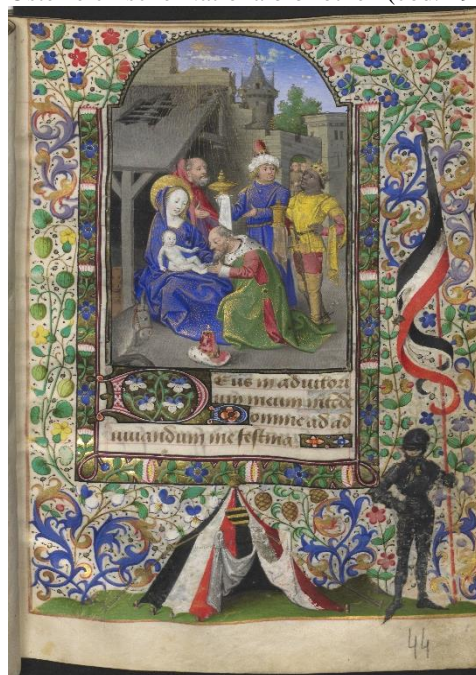 Deus in adiutori
um meum intēd
Domine ad ad
iuuandum me festina
44